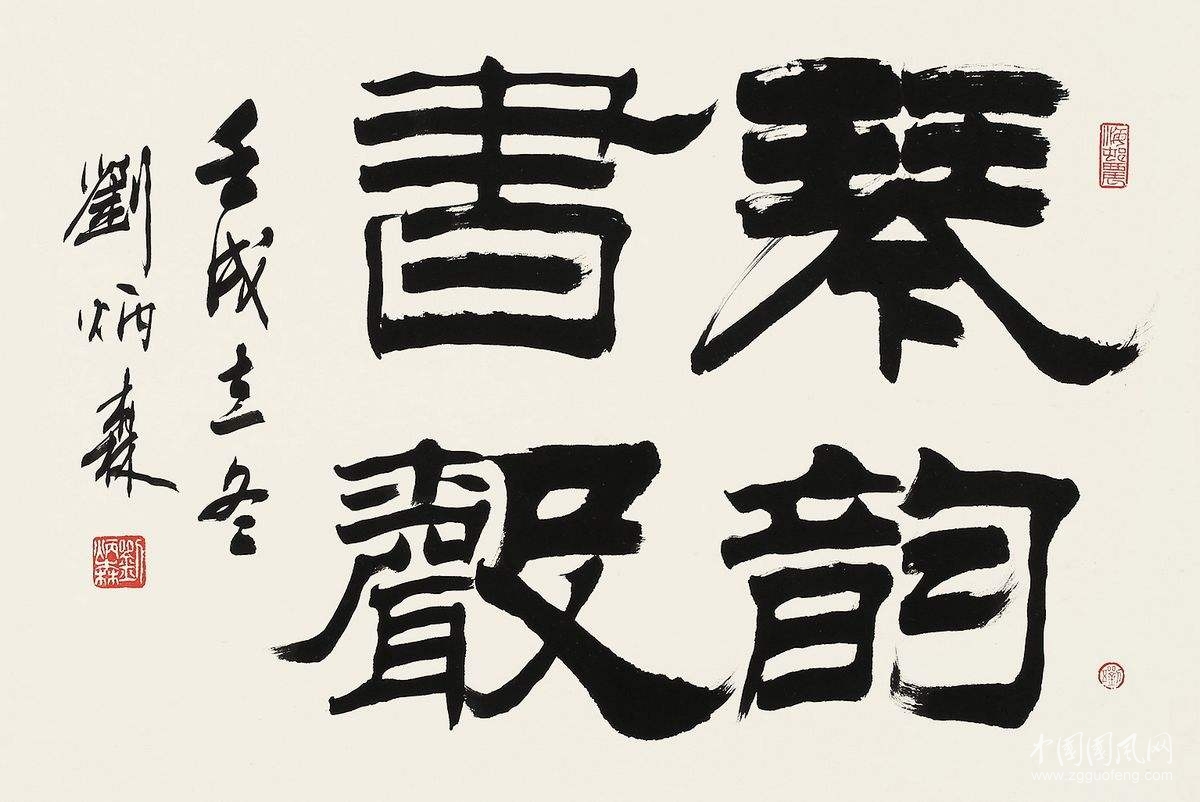 琴韵
書聲
壬戌立冬
劉炳森
劉炳森
中国国风网
www.zgguofeng.com